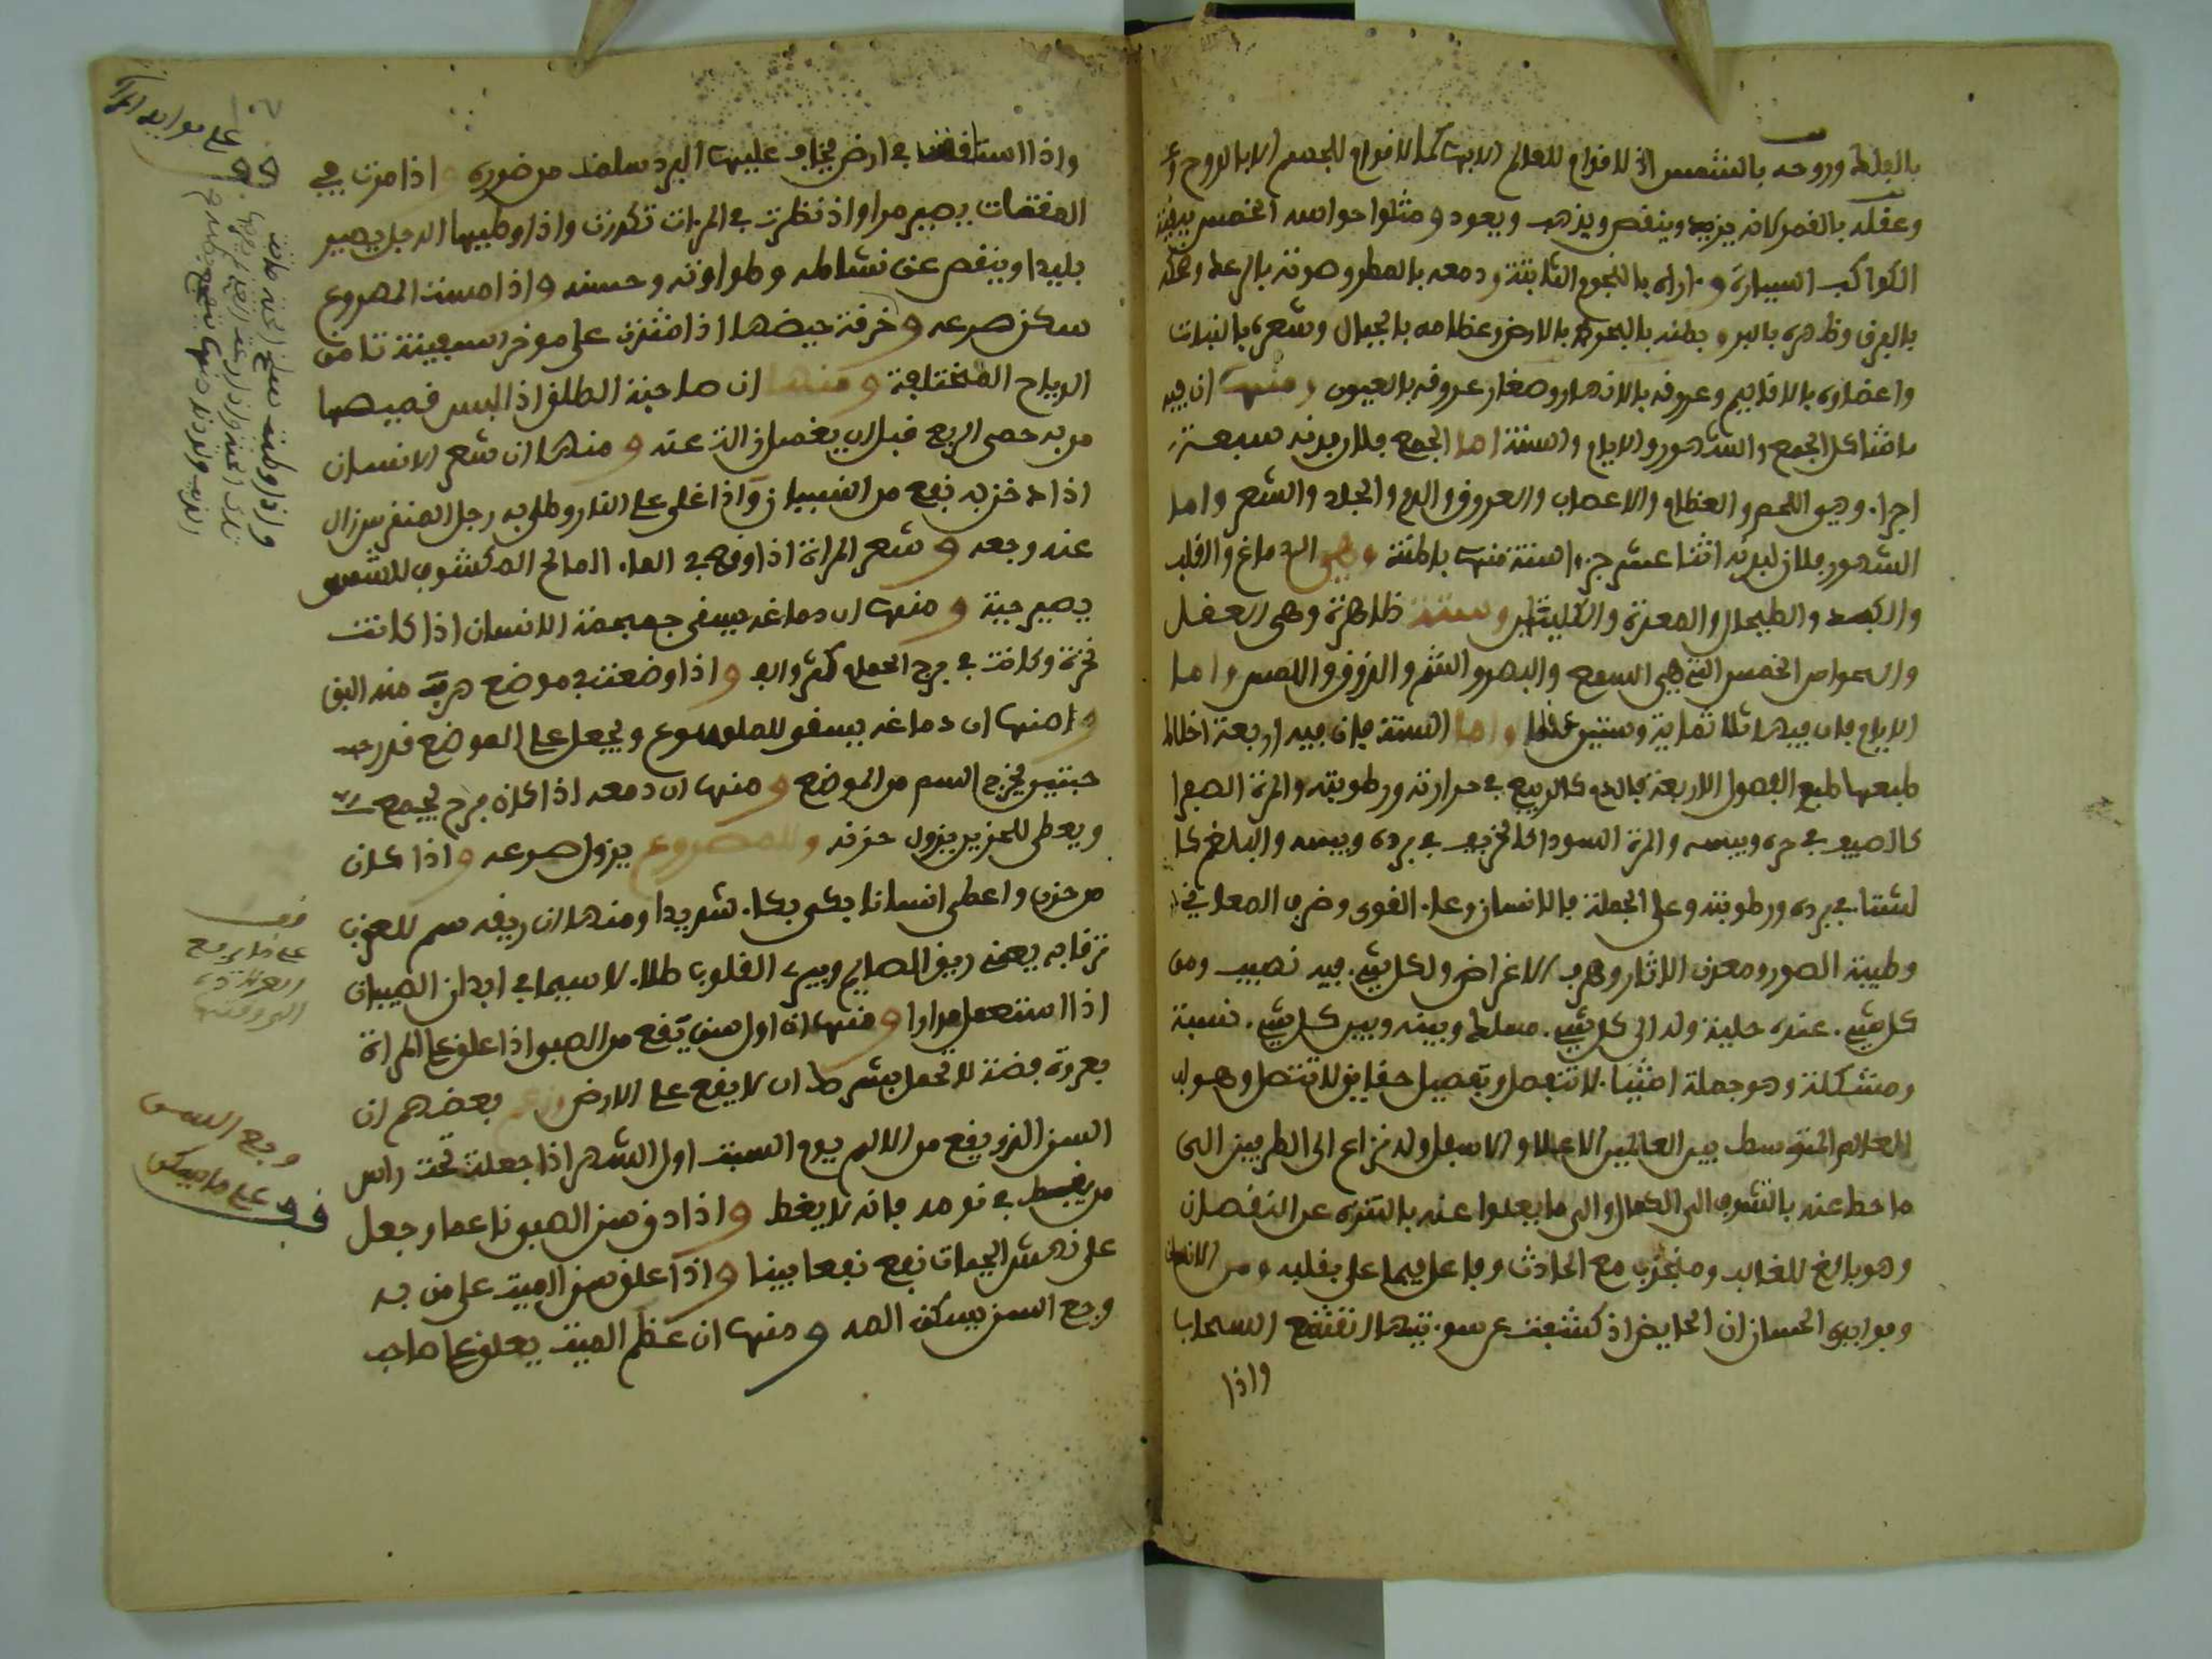 بالفلك وروحه بالشمس اذ لا قوام للعالم الا بها كما لا قوام للجسم الا بالروح
وعقله بالقمر لانه يزيد وينقص ويذهب ويعود ومثلوا حواسه الخمس ببقية
الكواكب السيارة و اراه بالنجوم الثابتة ودمعه بالمطر وصوته بالرعد وضحكه
بالبرق وظهره بالبر وبطنه بالبحر بالارض وعظامه بالجبال وشعره بالنبات
واعضاره بالاقاليم وعروقه بالانهار وصغار عروقه بالعيون ومنها ان فيه
ما شاكل الجمع والشهور والايام والسنة اما الجمع فلان بدنه سبعة
اجزاء وهي اللحم والعظام والاعصاب والعروق والدم والجلد والشعر واما
الشهور فلان لبدنه اثنا عشر جزءا ستة منها باطنة وهي الدماغ والقلب
والكبد والطحال والمعدة والكليتان وستة ظاهرة وهي العقل
والحواس الخمس التي هي السمع والبصر والشم والذوق واللمس واما
الايام فان فيها ثلاثماية وستين عظما واما السنة فان فيه اربعة اخلاط
طبعها طبع الفصول الاربعة فالدم كالربيع في حرارته ورطوبته والمرة الصفرا
كالصيف في حره ويبسه والمرة السودا كالخريف في برده ويبسه والبلغم كا
لشتاء في برده ورطوبته وعلى الجملة فالانسان وعاء القوى وضرب المعاني
وطينة الصور ومعدن الاثار وهدف الاغراض ولكل شيء فيه نصيب ومن
كل شيء عنده حلية وله الى كل شيء مسلك وبينه وبين كل شيء نسبة
ومشكلة وهو جملة اشياء لا تنفصل وتفصيل حقايق لا تتصل وهو له
العلام المتوسط بين العالمين الاعلا والاسفل وله نزاع الى الطرفين الى
ما حط عنه بالتشوق الى الكمال والى ما يعلوا عنه بالتنزه عن النقصان
وهو بالغ للغالب ومنجذب مع الحادث وفاعل فيما على بقلبه ومن الانسان
وفوايده الحسان ان الحايض اذ كشفت عن سوءتيها انقشع السحاب
واذا
واذا استلقت في ارض يخاف عليها البرد سلمت من ضرره واذا مرت في
المقثات يصير مرا واذ نظرت في المرات تكدرت واذا وطيها الرجل يصير
بليدا وينقص عن نشاطه وطراوته وحسنه واذا مست المصروع
سكن صرعه وخرقة حيضها اذا نشرت على موخر سفينة تامن
الرياح المختلفة ومنها ان صاحبة الطلق اذ البس قميصها
من به حمى الربع قبل ان يغسل زالت عنه ومنها ان شعر الانسان
اذا دخن به نفع من النسيان واذا غلى على النار وطلي به رجل المنقرس زال
عنه وجعه وشعر المراة اذا وقع في الماء المالح المكشوف للشمس
يصير حية ومنها ان دماغه يسقى جمجمة الانسان اذا كانت
نخرة وكانت في برج الحمام كثر واذا وضعت في موضع هربت منه البق
ومنها ان دماغه يسقى للملسوع ويجعل على الموضع قدر
حبتين يخرج السم من الموضع ومنها ان دمعه اذا كان فرح يجمع
ويعطى للحزين يزول حزنه وللمصروع يزول صرعه واذا كان
من حزن واعطى انسانا بكى بكاء شديدا ومنها ان ريقه سم للعقرب
ترقابه يعني ريق الصايم ويبرء القلوب طلاء لا سيما في ابدان الصبيان
اذا استعمل مرارا ومنها ان اول سن تقع من الصبي اذا علق على المراة
بعروة فضة لا تحمل بشرط ان لا يقع على الارض وزعم بعضهم ان
السن الذي يقع من الالم يوم السبت اول الشهر اذا جعلت تحت راس
من يغط في نومه فانه لا يغط واذا دق سن الصبي ناعما وجعل
على نهش الحيات نفع نفعا بينا واذا علق سن الميت على من به
وجع السن يسكن المه ومنها ان عظم الميت يعلق على صاحب
على ما يدفع
وجع السن
قف على ما يسكن